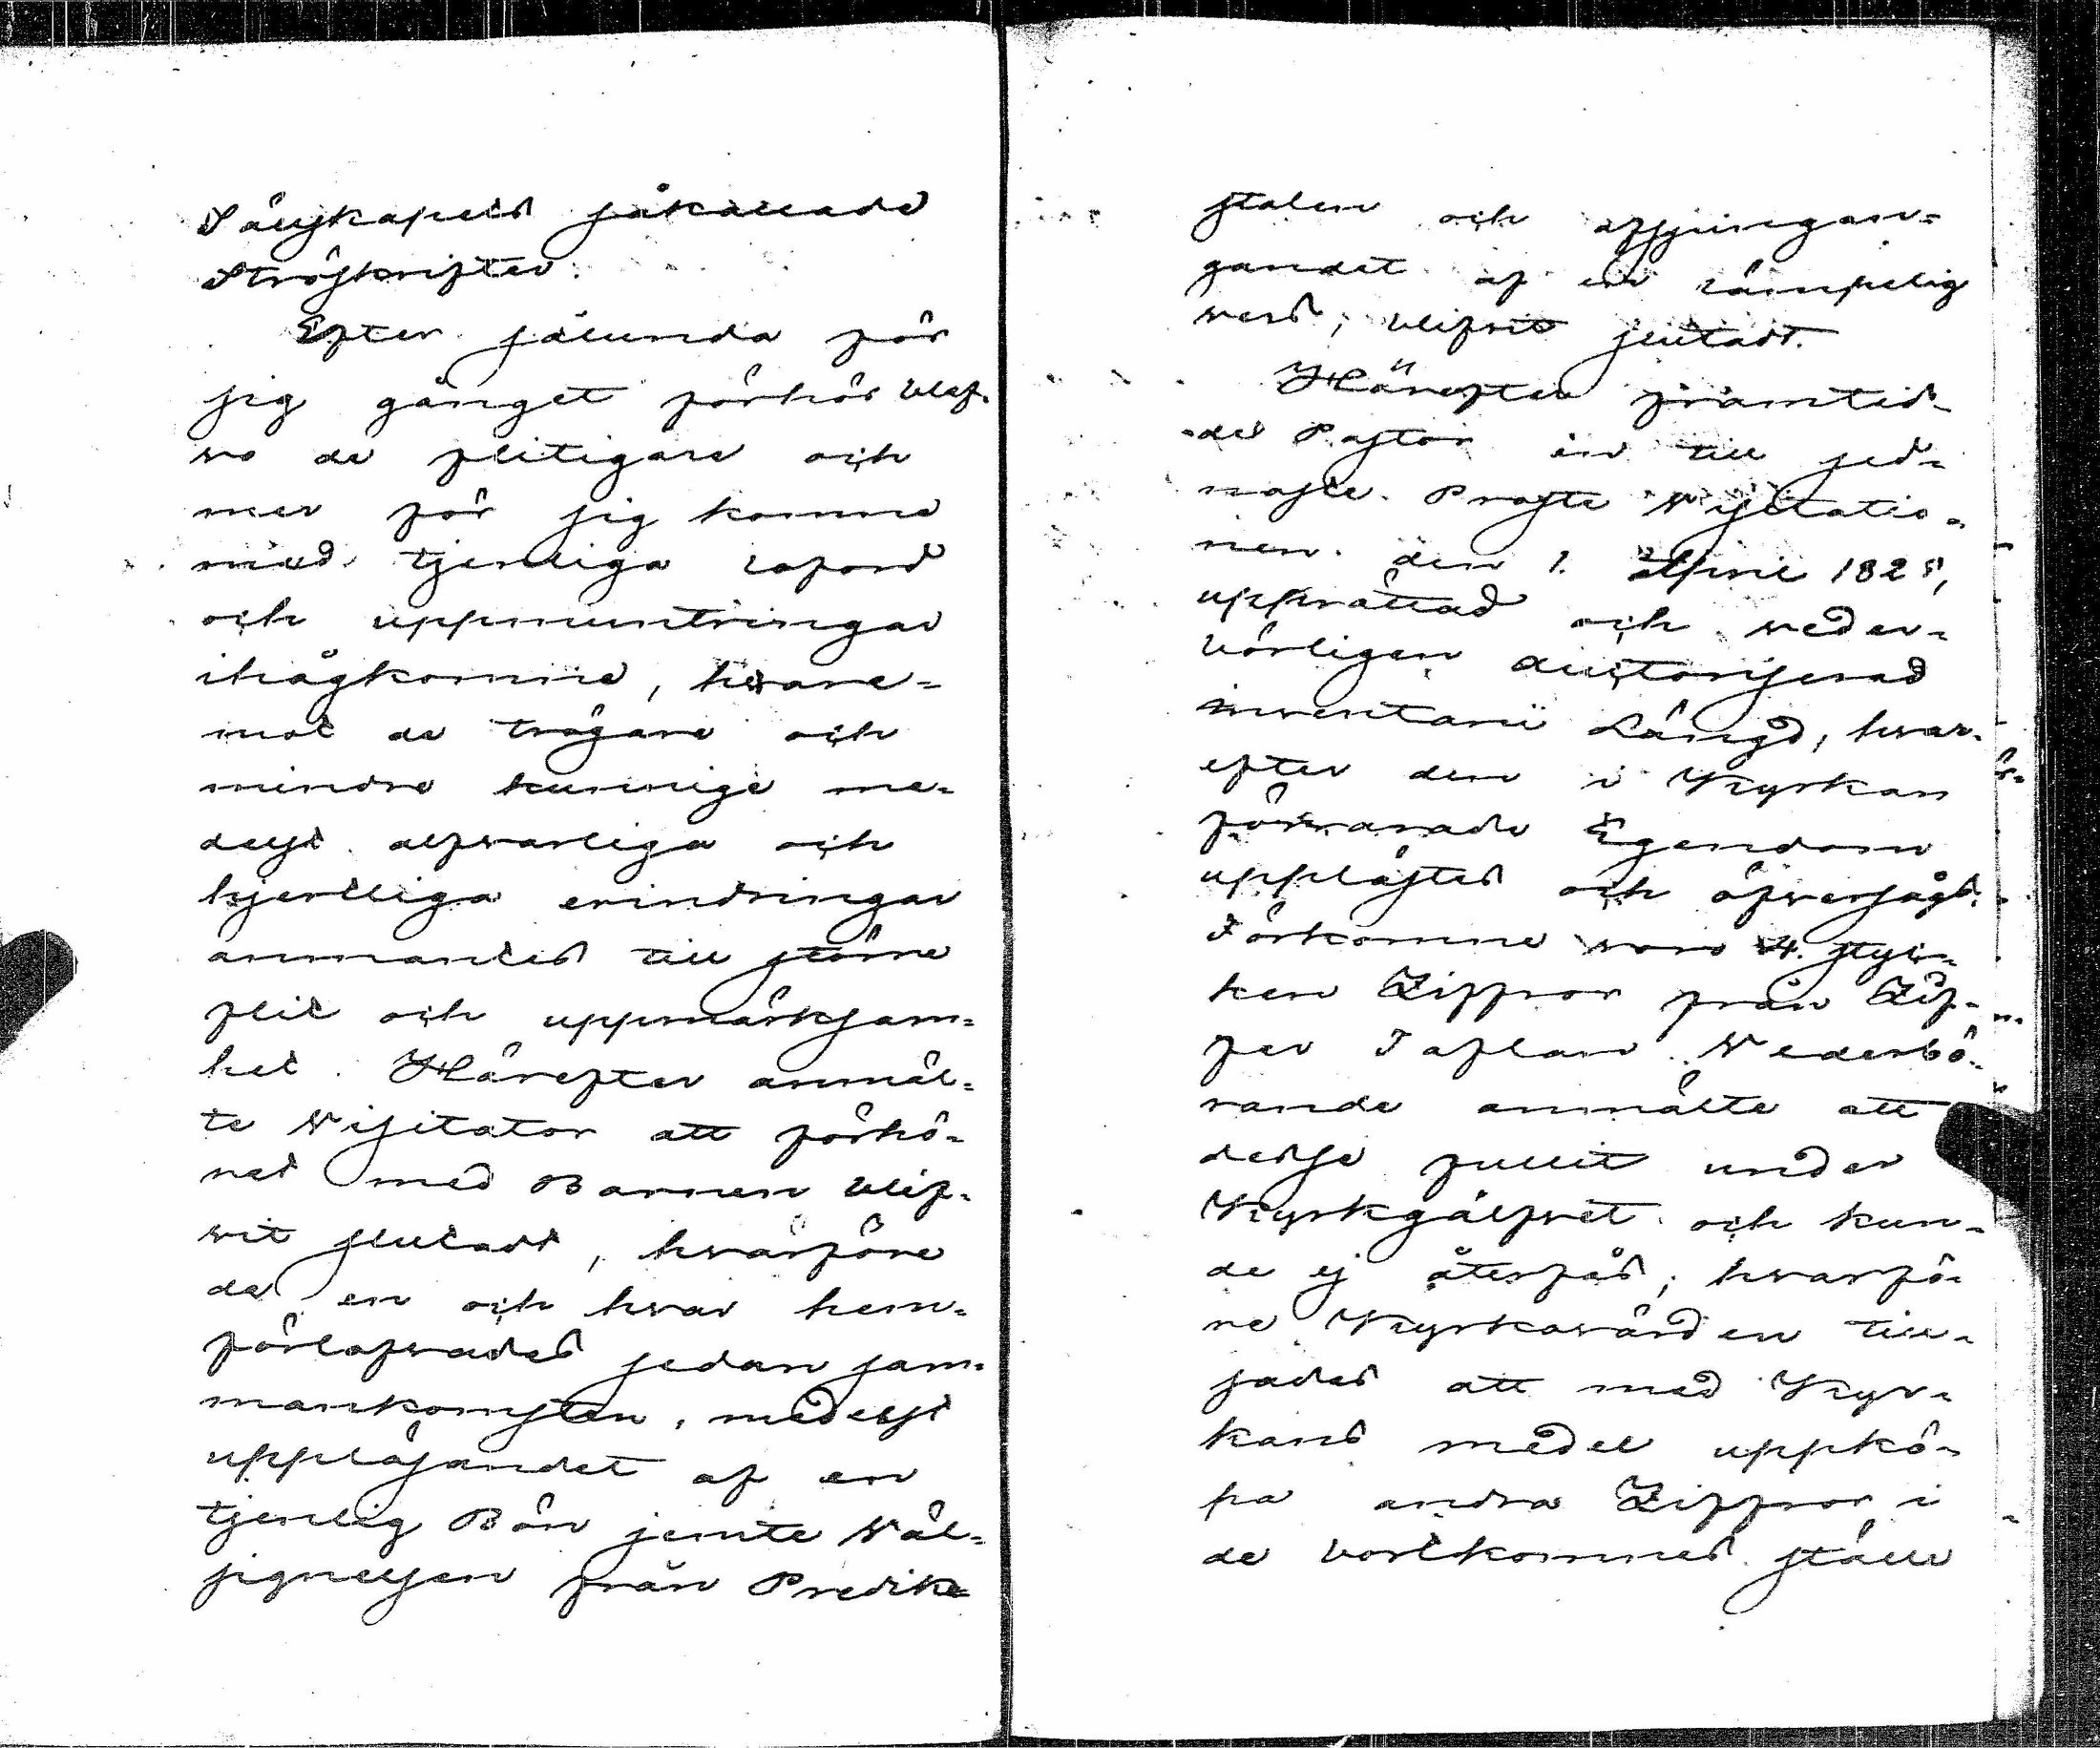 Sällskapets såkallade
Ströskrifter.
Efter sålunda för
sig gånget förhör blef-
wo de flitigare och
mer för sig komne
med tjenliga loford
och uppmuntringar
ihågkomne, hware-
mot de trögare och
mindre kunnige me-
delst alfwarliga och
hjertliga erindringar
anmantes till större
flit och uppmärksam-
het. Härefter anmäl-
te Wisitator att förhö-
ret med Barnen blif-
wit slutadt, hwarföre
de en och hwar hem-
förlofwades sedan sam-
mankomsten, medelst
uppläsandet af en
tjenlig Bön jemte Wäl-
signelsen från Predik-
stolen och afsjungan-
gandet af en lämpelig
vers, blifvit slutadt.
Härefter framted-
de Pastor en till sed-
naste Proste Wisitatio-
nen den 1. April 1825,
upprättad och weder-
börligen auctoriserad
inventarii Längd, hwar-
efter den i Kyrkan
förwarade Egendom
upplästes och öfwersågs.
Förkomne woro 4. styc-
ken Ziffror från Zif-
fer Taflan. Wederbö-
rande anmälte att
desse fullit under
Kyrkgålfvet och kun-
de ej återfås; hwarfö-
re Kyrkovärden till-
sades att med Kyr-
kans medel uppkö-
pa andra Ziffror i
de bortkomnes ställe